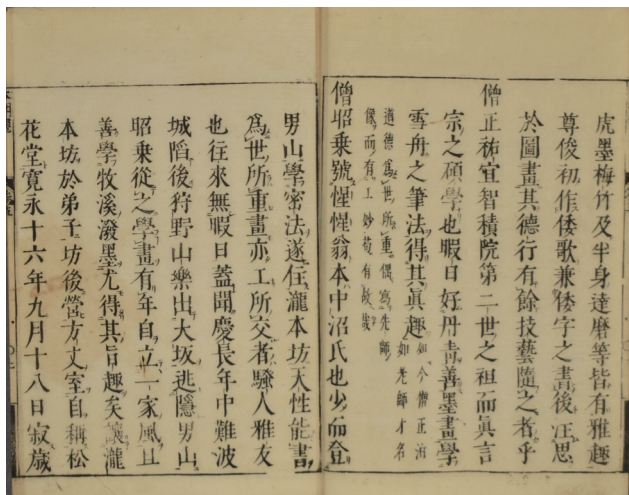 虎墨梅竹及半身達磨等皆有雅趣
尊俊初作倭歌兼倭字之書後注思
於圖畫其德行有餘技藝隨之者乎
僧正祐宜智積院第二世之祖而眞言
宗之碩學也暇日好丹青善墨畫學
雪舟之筆法得其眞趣
如今僧正泊
如先師才名
道德爲世所重偶寫先師
像而有工妙有故哉
僧昭乗號惺惺翁本中沼氏也少而登
男山學密法遂住瀧本坊天性能書
爲世所重畫亦工所交者騷人雅友
也往來無暇日蓋聞慶長年中難波
城陷後狩野山樂出大坂逃隱男山
昭乗從之學畫有年自立一家風且
善學牧溪潑墨尤得其旨趣矣讓瀧
本坊於弟子坊後營方丈室自稱松
花堂寛永十六年九月十八日寂歳